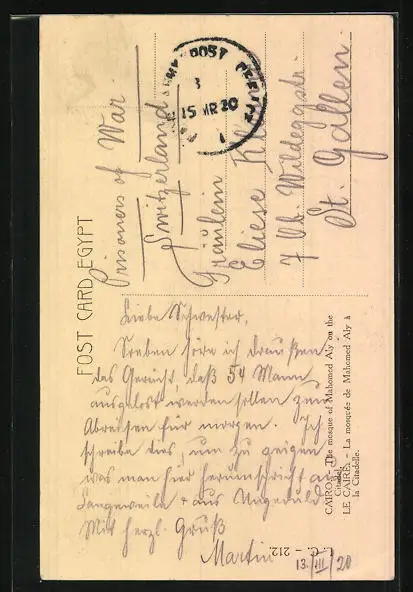 POST CARD EGYPT
Prisoners of War
Switzerland
Fräulein
Eliese
7 Ob. Wildeggstr.
St. Gallen.
POST OFFICE
15 MR 20
Liebe Schwester,
Soeben höre ich draußen
das Gerücht, daß 54 Mann
ausgelost werden sollen zum
Abreisen für morgen. Ich
schreibe dies, um zu zeigen
was man hier herumspricht aus
Langeweile + aus Ungeduld.
Mit herzl. Gruß
Martin
13./III/20
CAIRO. - The mosque of Mahomed Aly on the
Citadel.
LE CAIRE. - La mosquée de Mahomed Aly à
la Citadelle.
L. C. - 212.